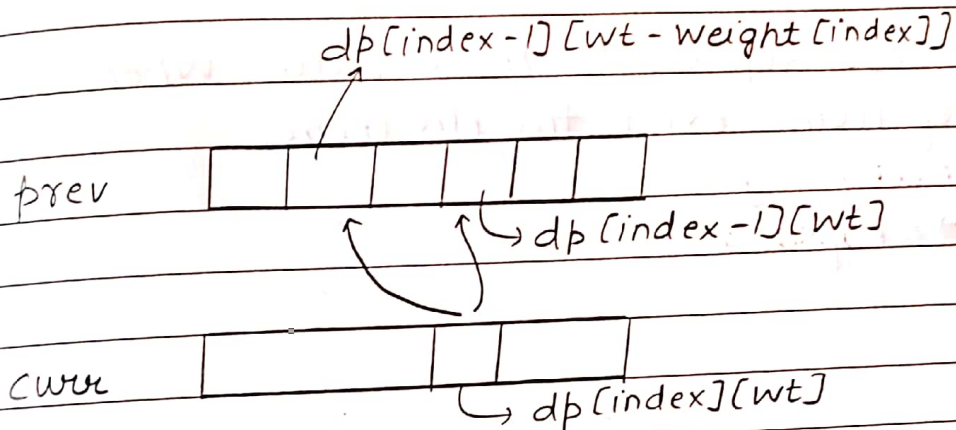 dp[index-1][wt-weight[index]]
prev
dp[index-1][wt]
curr
dp[index][wt]